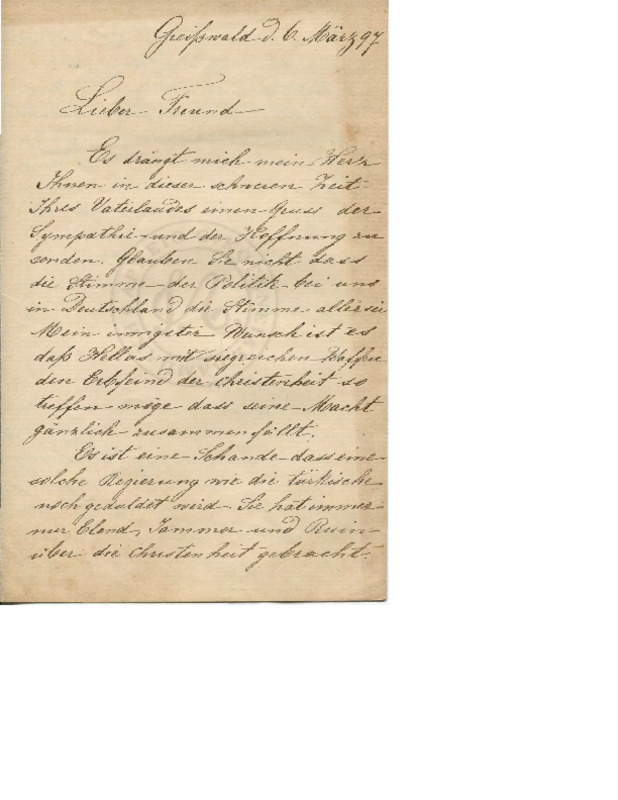 Greißwald d. 6. März 97
Lieber Freund
Es drängt mich mein Herz
Ihnen in dieser schweren Zeit
Ihres Vaterlandes einen Gruss der
Sympathie und der Hoffnung zu
senden. Glauben Sie nicht dass
die Stimme der Politik bei uns
in Deutschland die Stimme aller sei
Mein innigster Wunsch ist es
daß Hellas mit siegreichen Waffen
den Erbfeind der Christenheit so
treffen möge dass seine Macht
gänzlich zusammen fällt.
Es ist eine Schande dass eine
solche Regierung wie die türkische
noch geduldet wird. Sie hat immer
nur Elend, Jammer und Ruin
über die Christenheit gebracht.